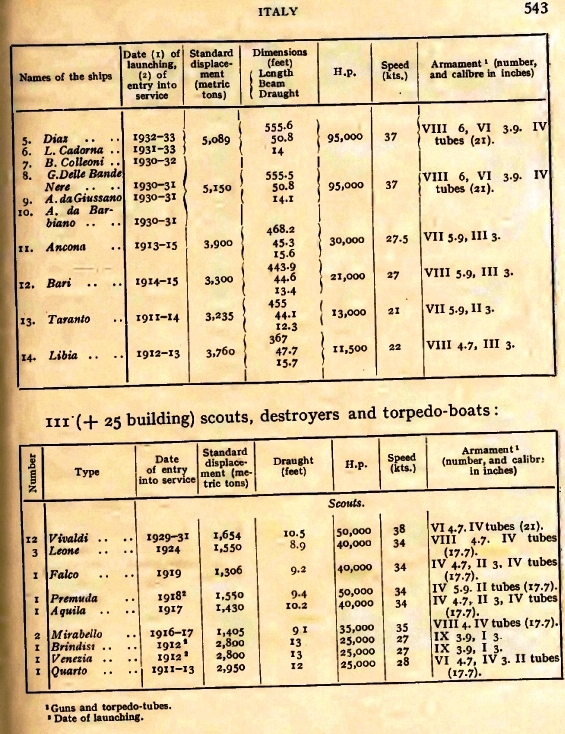 ITALY 543
Names of the ships | Date (1) of launching, (2) of entry into service | Standard displace-ment (metric tons) | Dimensions (feet) { Length Beam Draught | H.p. | Speed (kts.) | Armament¹ (number, and calibre in inches)
5. Diaz .. .. 1932-33 5,089 555.6 50.8 14 95,000 37 VIII 6, VI 3.9. IV tubes (21).
6. L. Cadorna .. 1931-33
7. B. Colleoni .. 1930-32
8. G.Delle Bande Nere .. .. 1930-31 5,150 555.5 50.8 14.1 95,000 37 VIII 6, VI 3.9. IV tubes (21).
9. A. da Giussano 1930-31
10. A. da Bar-biano .. .. 1930-31
11. Ancona .. 1913-15 3,900 468.2 45.3 15.6 30,000 27.5 VII 5.9, III 3.
12. Bari .. .. 1914-15 3,300 443.9 44.6 13.4 21,000 27 VIII 5.9, III 3.
13. Taranto .. 1911-14 3,235 455 44.1 12.3 13,000 21 VII 5.9, II 3.
14. Libia .. .. 1912-13 3,760 367 47.7 15.7 11,500 22 VIII 4.7, III 3.
111 (+ 25 building) scouts, destroyers and torpedo-boats:
Number | Type | Date of entry into service | Standard displace-ment (me-tric tons) | Draught (feet) | H.p. | Speed (kts.) | Armament¹ (number, and calibre in inches)
Scouts.
12 Vivaldi .. .. 1929-31 1,654 10.5 50,000 38 VI 4.7. IV tubes (21).
3 Leone .. .. 1924 1,550 8.9 40,000 34 VIII 4.7. IV tubes (17.7).
1 Falco .. .. 1919 1,306 9.2 40,000 34 IV 4.7, II 3, IV tubes (17.7).
1 Premuda .. .. 1918² 1,550 9.4 50,000 34 IV 5.9. II tubes (17.7).
1 Aquila .. .. 1917 1,430 10.2 40,000 34 IV 4.7, II 3, IV tubes (17.7).
2 Mirabello .. .. 1916-17 1,405 9 1 35,000 35 VIII 4. IV tubes (17.7).
1 Brindisi .. .. 1912² 2,800 13 25,000 27 IX 3.9, I 3.
1 Venezia .. .. 1912² 2,800 13 25,000 27 IX 3.9, I 3.
1 Quarto .. .. 1911-13 2,950 12 25,000 28 VI 4.7, IV 3. II tubes (17.7).
¹ Guns and torpedo-tubes.
² Date of launching.